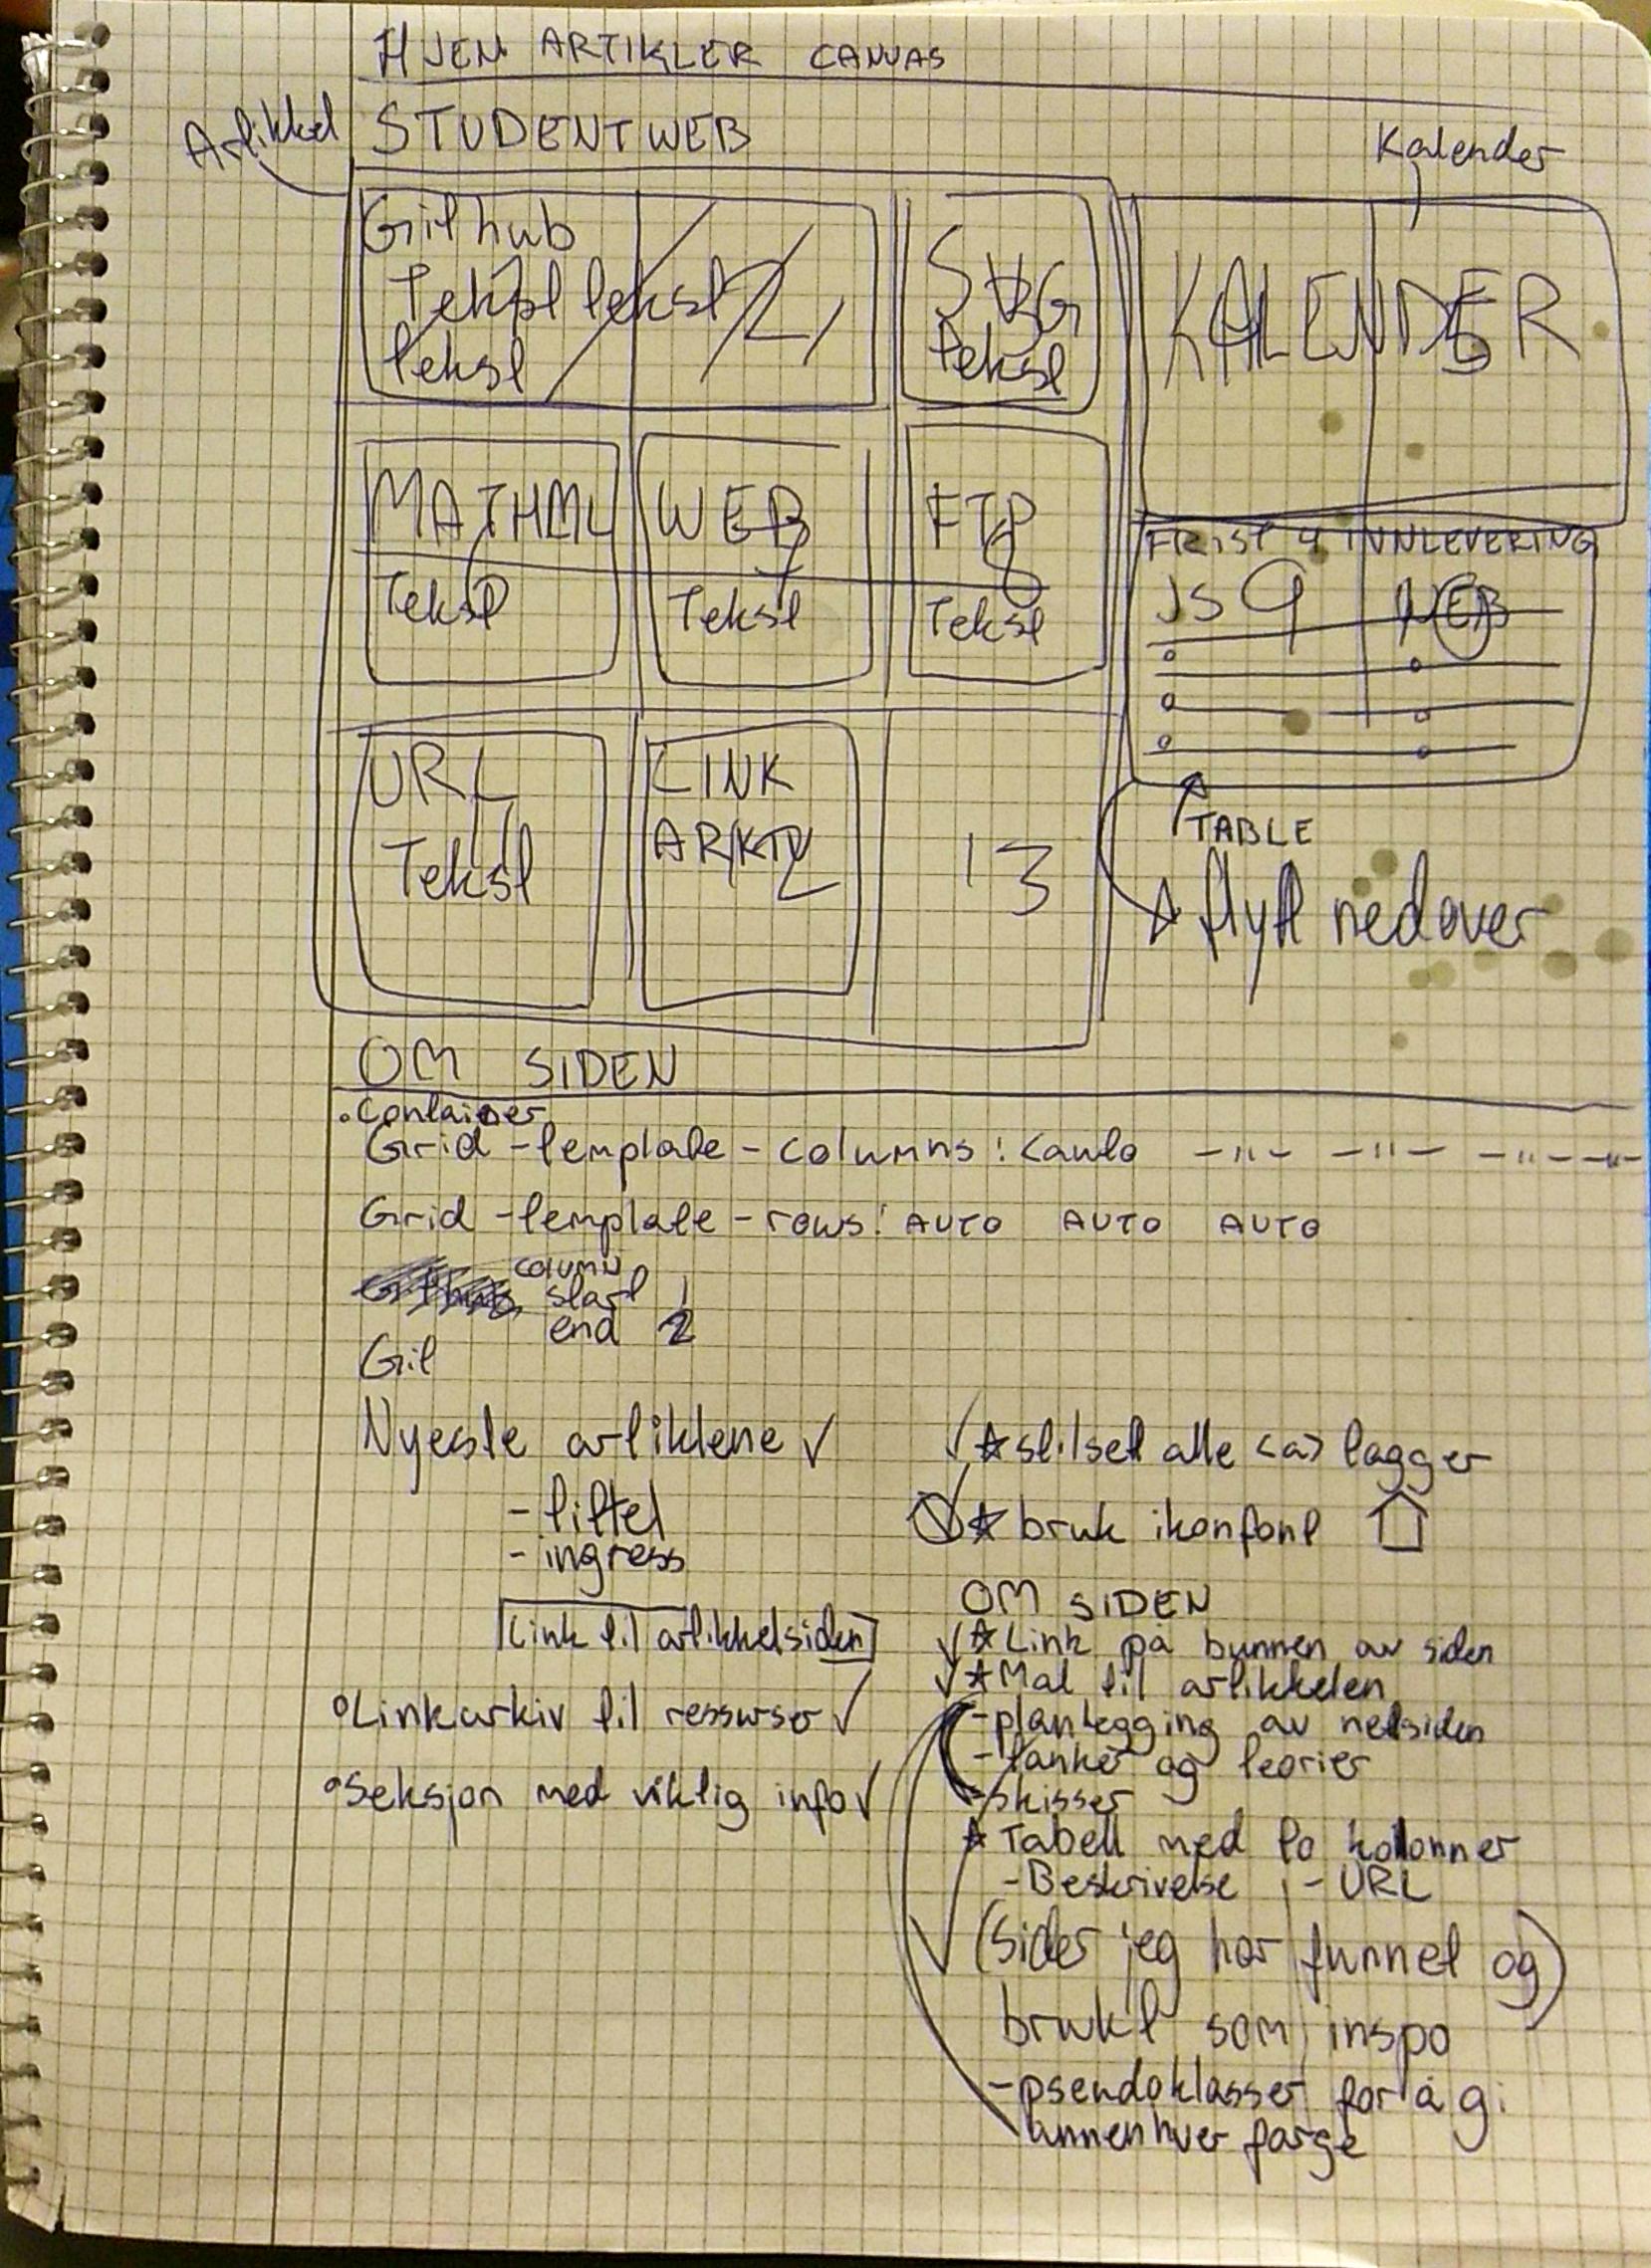 HJEM ARTIKLER CANVAS
Artikkel
STUDENTWEB
Kalender
Github
Tekst tekst
tekst
1
2
SVG
3
tekst
KALENDER
5
MATHML
6
Tekst
WEB
7
Tekst
FTP
8
Tekst
FRIST 4 INNLEVERING
JS 9 WEB
URL
Tekst
LINK
ARKIV
12
13
TABLE
flytt nedover
OM SIDEN
.Container
Grid-template-columns: auto -"- -"- -"- -"-
Grid-template-rows: AUTO AUTO AUTO
column
start 1
end 2
Git
Nyeste artiklene ✓
- tittel
- ingress
Link til artikkelsiden
Linkarkiv til ressurser ✓
Seksjon med viktig info ✓
✓ ☆ stilsett alle <a> tagger
✓ ☆ bruk ikonfont
OM SIDEN
✓ ☆ Link på bunnen av siden
✓ ☆ Mal til artikkelen
- planlegging av nettsiden
- tanker og teorier
- skisser
☆ Tabell med to kolonner
- Beskrivelse - URL
✓ (Sider jeg har funnet og)
brukt som inspo
- pseudoklasser for å gi
annenhver farge